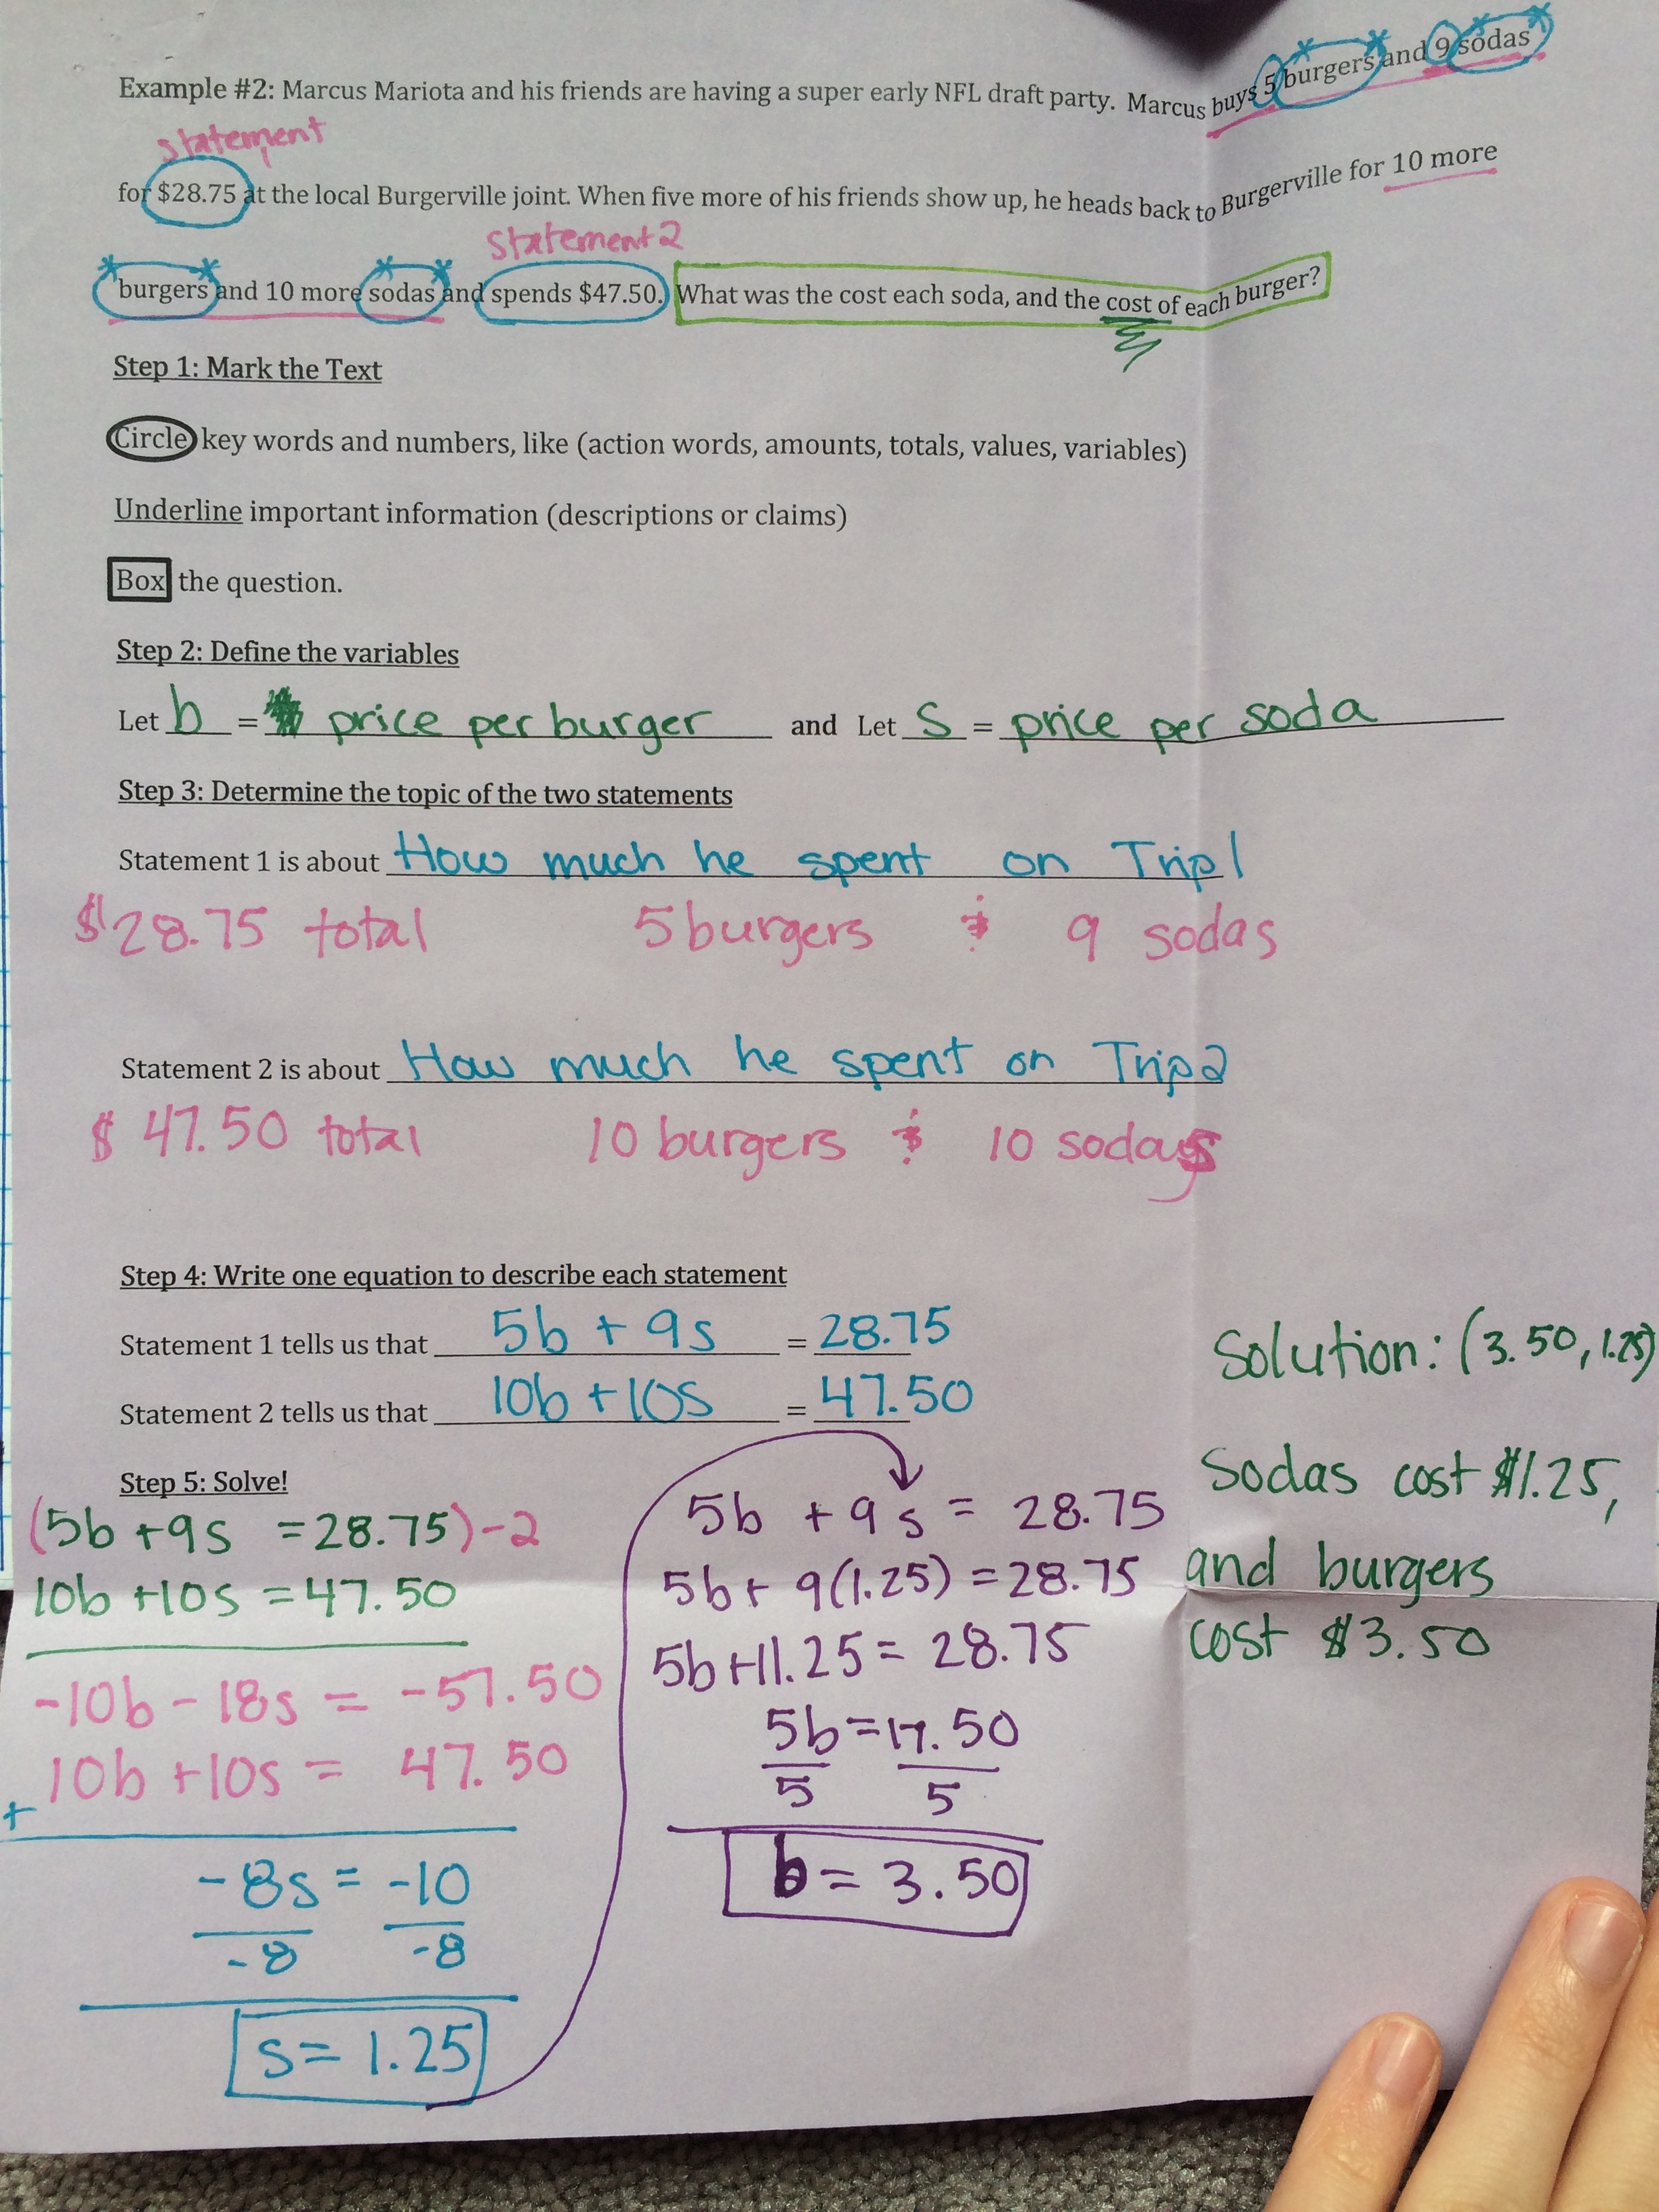 Example #2: Marcus Mariota and his friends are having a super early NFL draft party. Marcus buys 5 burgers and 9 sodas
statement
for $28.75 at the local Burgerville joint. When five more of his friends show up, he heads back to Burgerville for 10 more
statement 2
burgers and 10 more sodas and spends $47.50. What was the cost each soda, and the cost of each burger?
Step 1: Mark the Text
Circle key words and numbers, like (action words, amounts, totals, values, variables)
Underline important information (descriptions or claims)
Box the question.
Step 2: Define the variables
Let b = price per burger and Let s = price per soda
Step 3: Determine the topic of the two statements
Statement 1 is about How much he spent on Trip 1
$28.75 total 5 burgers & 9 sodas
Statement 2 is about How much he spent on Trip 2
$47.50 total 10 burgers & 10 sodas
Step 4: Write one equation to describe each statement
Statement 1 tells us that 5b + 9s = 28.75
Statement 2 tells us that 10b + 10s = 47.50
Step 5: Solve!
(5b + 9s = 28.75) -2
10b + 10s = 47.50
-10b - 18s = -57.50
10b + 10s = 47.50
+
-8s = -10
-8 -8
s = 1.25
5b + 9s = 28.75
5b + 9(1.25) = 28.75
5b + 11.25 = 28.75
5b = 17.50
5 5
b = 3.50
Solution: (3.50, 1.25)
Sodas cost $1.25,
and burgers
cost $3.50